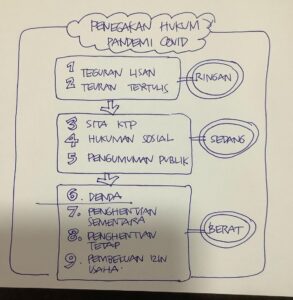 PENEGAKAN HUKUM
PANDEMI COVID
1 TEGURAN LISAN
2 TEURAN TERTULIS
RINGAN
3 SITA KTP
4 HUKUMAN SOSIAL
5 PENGUMUMAN PUBLIK
SEDANG
6. DENDA
7. PENGHENTIAN
SEMENTARA
8. PENGHENTIAN
TETAP
9. PEMBEKUAN IZIN
USAHA.
BERAT